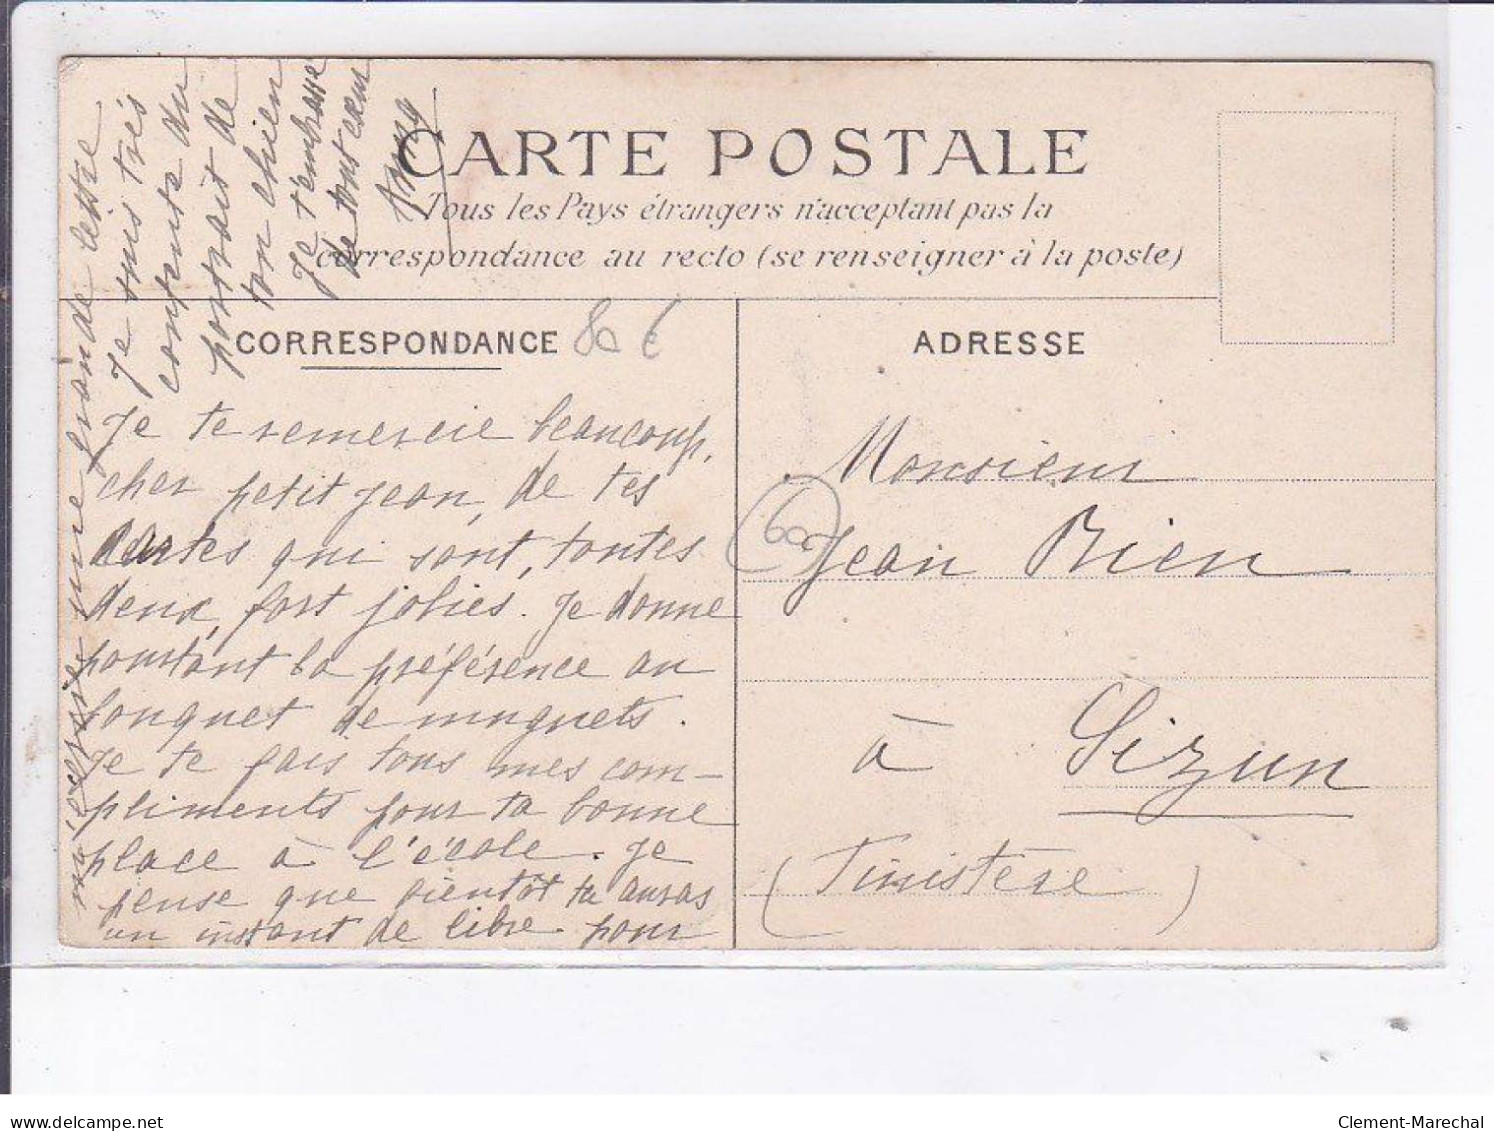 CARTE POSTALE
Tous les Pays étrangers n'acceptant pas la
correspondance au recto (se renseigner à la poste)
CORRESPONDANCE
80 €
Je te remercie beaucoup,
cher petit Jean, de tes
cartes qui sont, toutes
deux, fort jolies. Je donne
pourtant la préférence au
bouquet de muguets.
Je te fais tous mes com-
pliments pour ta bonne
place à l'école. Je
pense que bientôt tu auras
un instant de libre pour
m'écrire une grande lettre
Je suis très
contente du
portrait de
ton chien
Je t'embrasse
de tout cœur
ADRESSE
Monsieur
60€
Jean Bien
à Sizun
(Finistère)
delcampe.net
Clement-Marechal